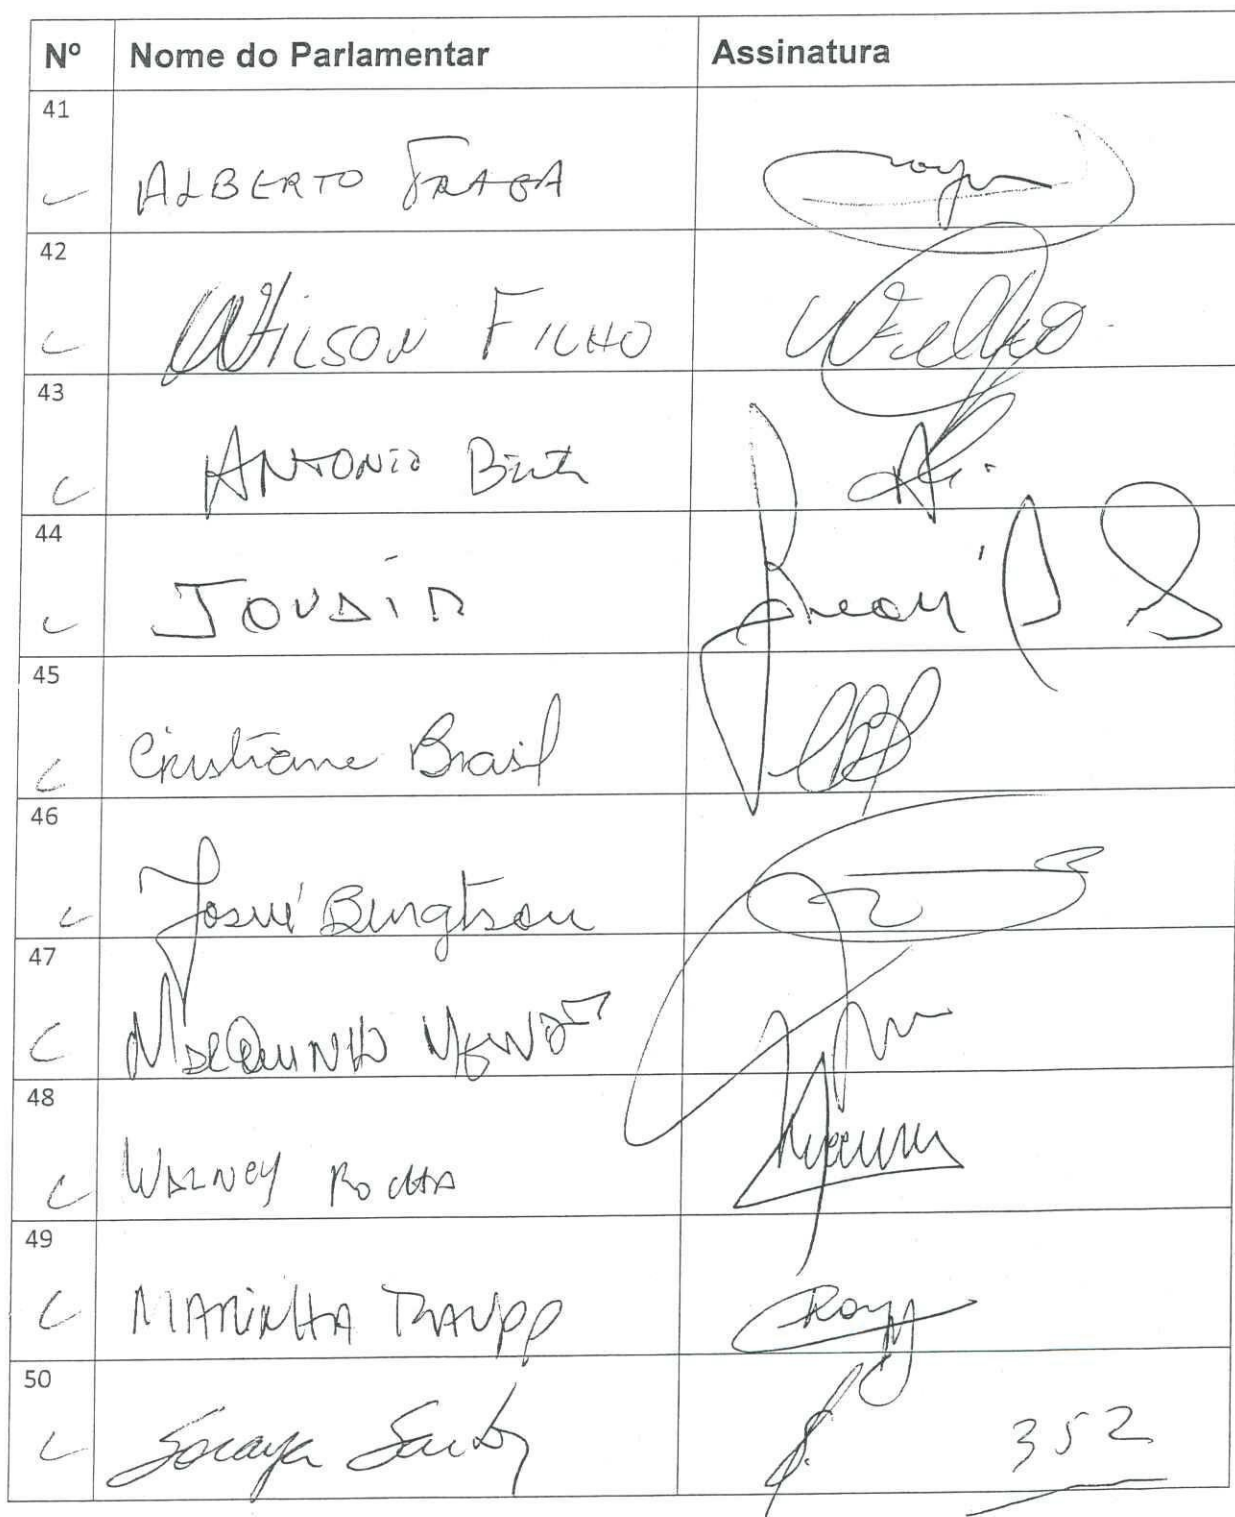 Nº Nome do Parlamentar Assinatura
41
ALBERTO FRAGA
42
WILSON FILHO
43
ANTONIO Brito
44
JOVAIR
45
Cristiane Brasil
46
Josué Bengtson
47
MARQUINHO MENDES
48
WALNEY ROCHA
49
MARINHA RAUPP
50
Soraya Santos
352